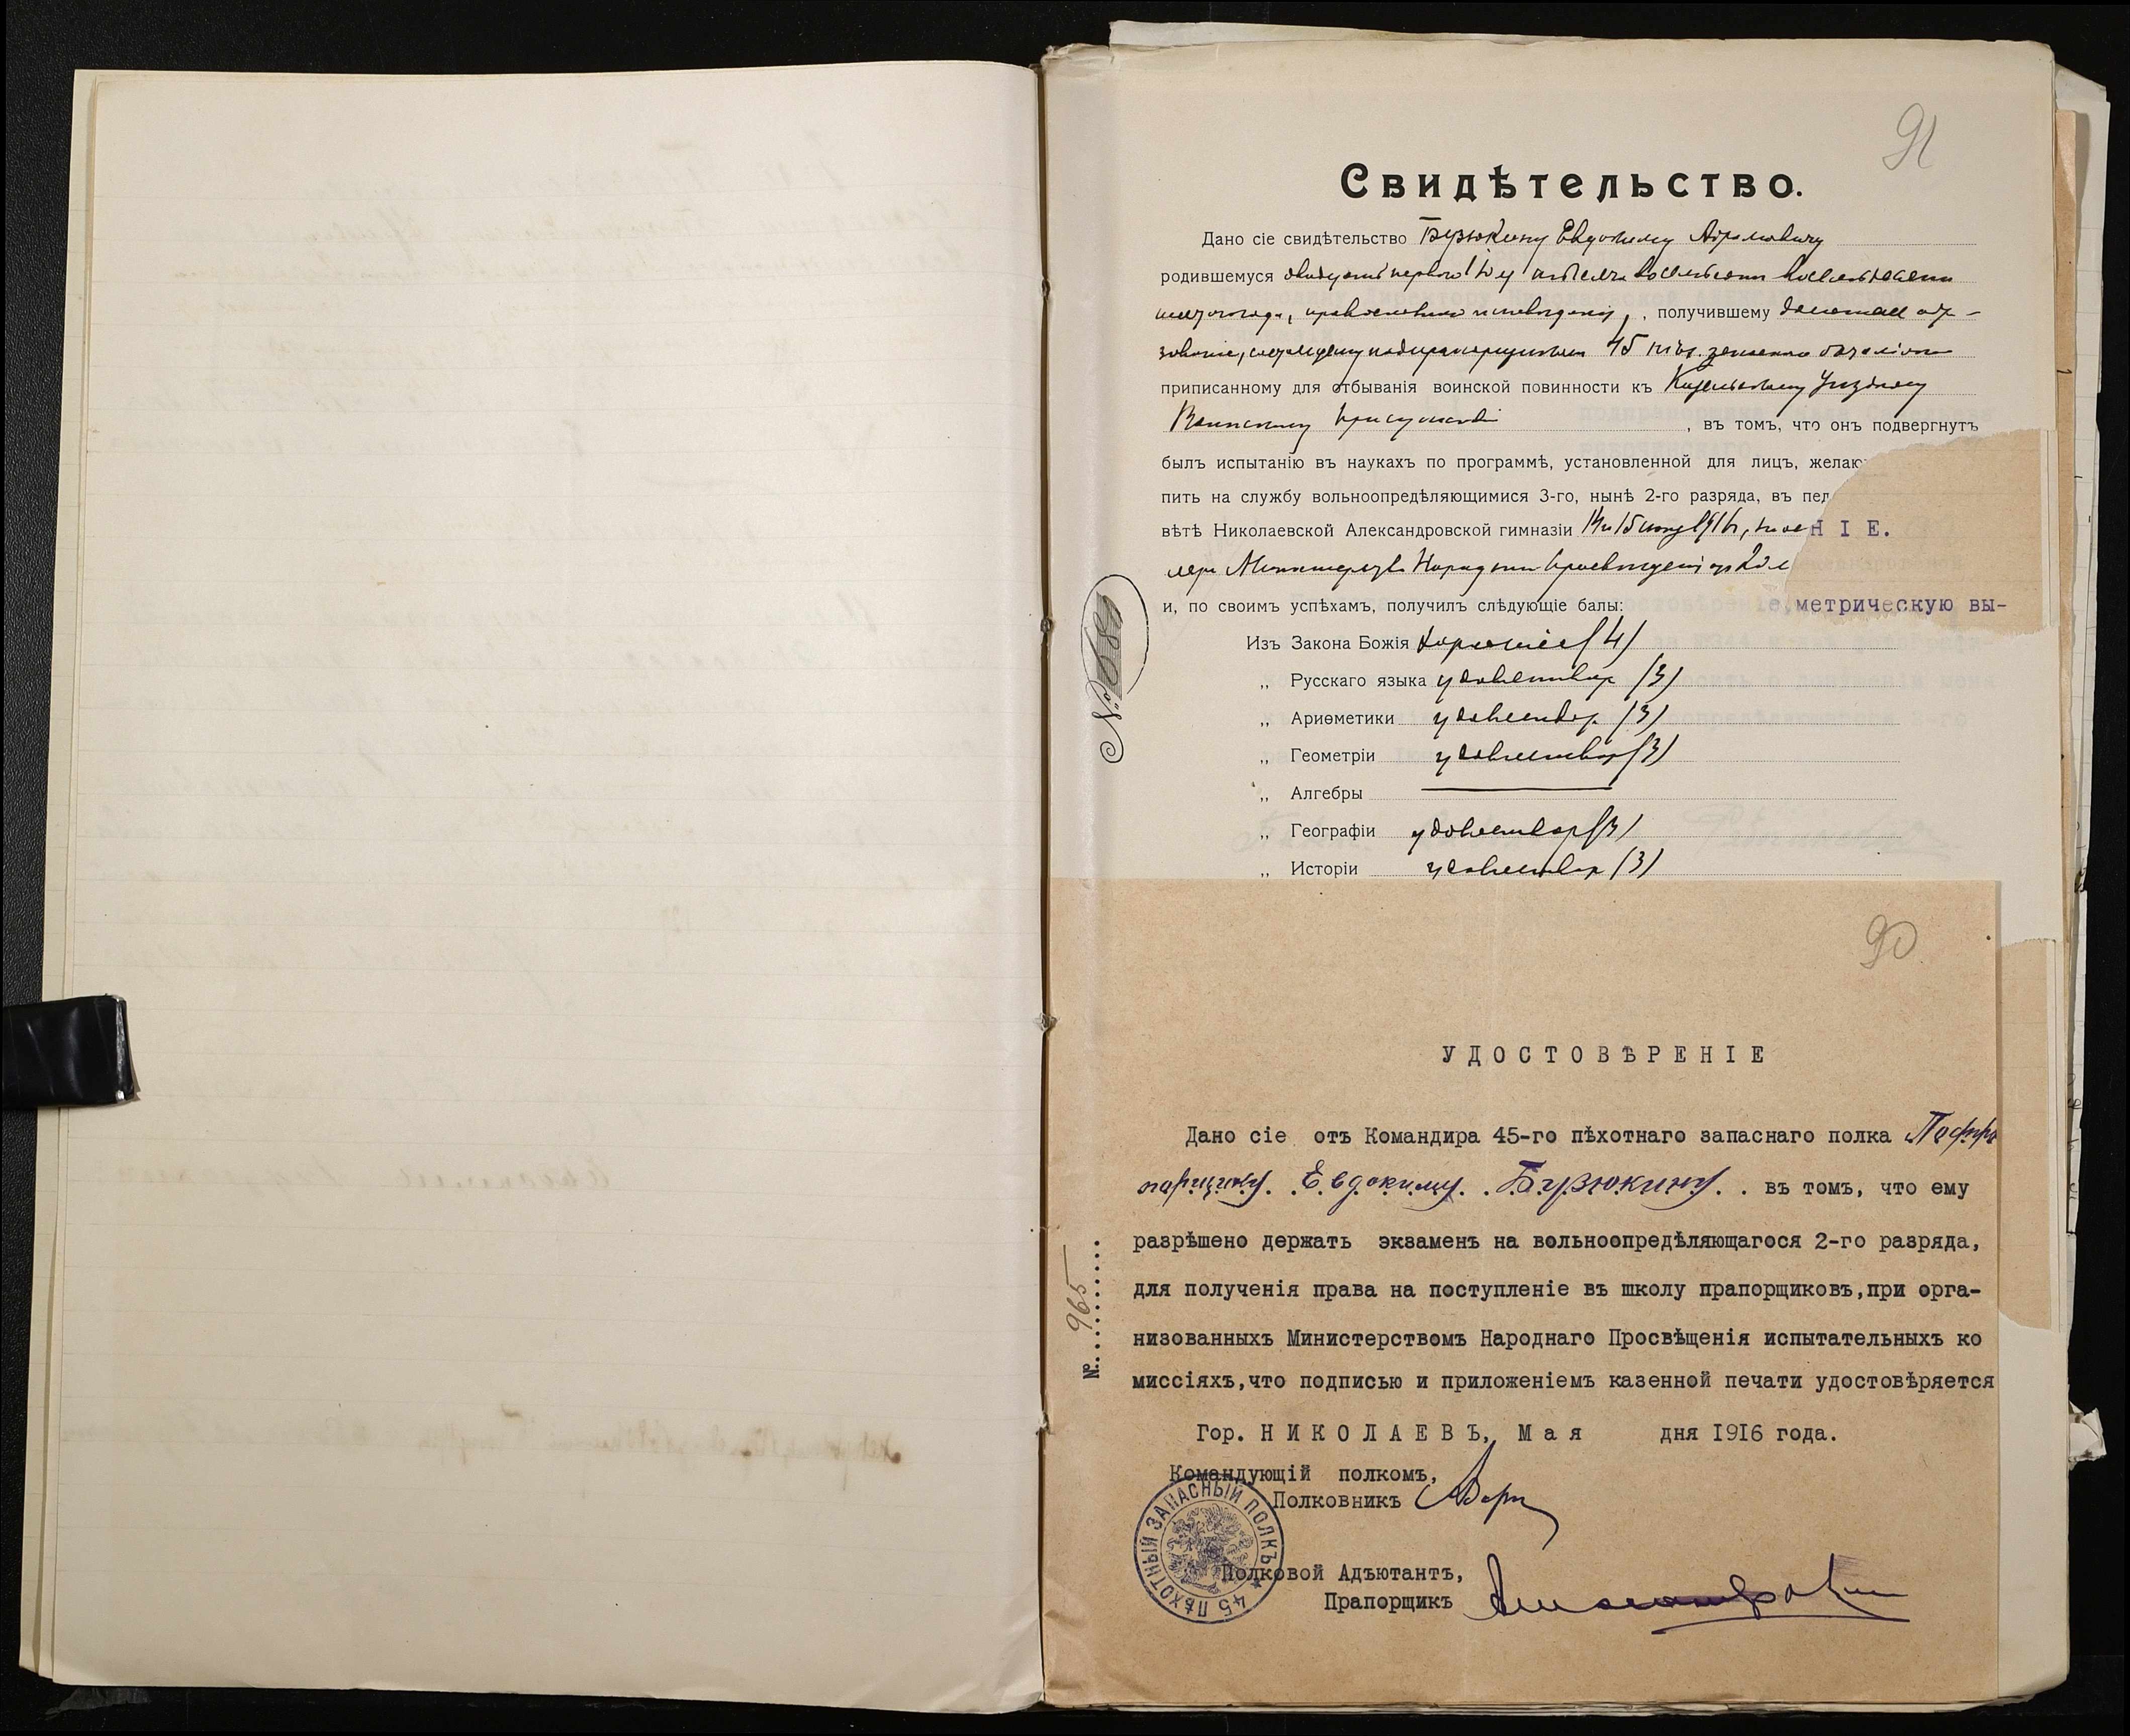 91
Свидѣтельство.
Дано сіе свидѣтельство Бузюкину Евдокиму Абрамовичу
родившемуся двадцать перваго Іюля тысяча восемьсотъ восемьдесятъ
года, православнаго исповѣданія, получившему домашнее обра-
зованіе, подпрапорщикомъ 45 пѣх. баталіона
приписанному для отбыванія воинской повинности къ уѣздному
Воинскому Присутствію, въ томъ, что онъ подвергнутъ
былъ испытанію въ наукахъ по программѣ, установленной для лицъ, желаю
пить на службу вольноопредѣляющимися 3-го, нынѣ 2-го разряда, въ пед
вѣтѣ Николаевской Александровской гимназіи 14 и 15 1916 г.,
НІЕ.
Министерства Народнаго Просвѣщенія отъ
и, по своимъ успѣхамъ, получилъ слѣдующіе балы:
е, метрическую вы-
№ 689
Изъ Закона Божія хорошіе (4)
„ Русскаго языка удовлетвор (3)
„ Ариѳметики удовлетвор (3)
„ Геометріи удовлетвор (3)
„ Алгебры
„ Географіи удовлетвор (3)
„ Исторіи удовлетвор (3)
90
УДОСТОВѢРЕНІЕ
Дано сіе отъ Командира 45-го пѣхотнаго запаснаго полка Подпра
порщику Евдокиму Бузюкину въ томъ, что ему
разрѣшено держать экзаменъ на вольноопредѣляющагося 2-го разряда,
для полученія права на поступленіе въ школу прапорщиковъ, при орга-
низованныхъ Министерствомъ Народнаго Просвѣщенія испытательныхъ ко
миссіяхъ, что подписью и приложеніемъ казенной печати удостовѣряется
№ 965
Гор. НИКОЛАЕВЪ, Мая дня 1916 года.
Командующій полкомъ,
Полковникъ
45 ПѢХОТНЫЙ ЗАПАСНЫЙ ПОЛКЪ
Полковой Адъютантъ,
Прапорщикъ